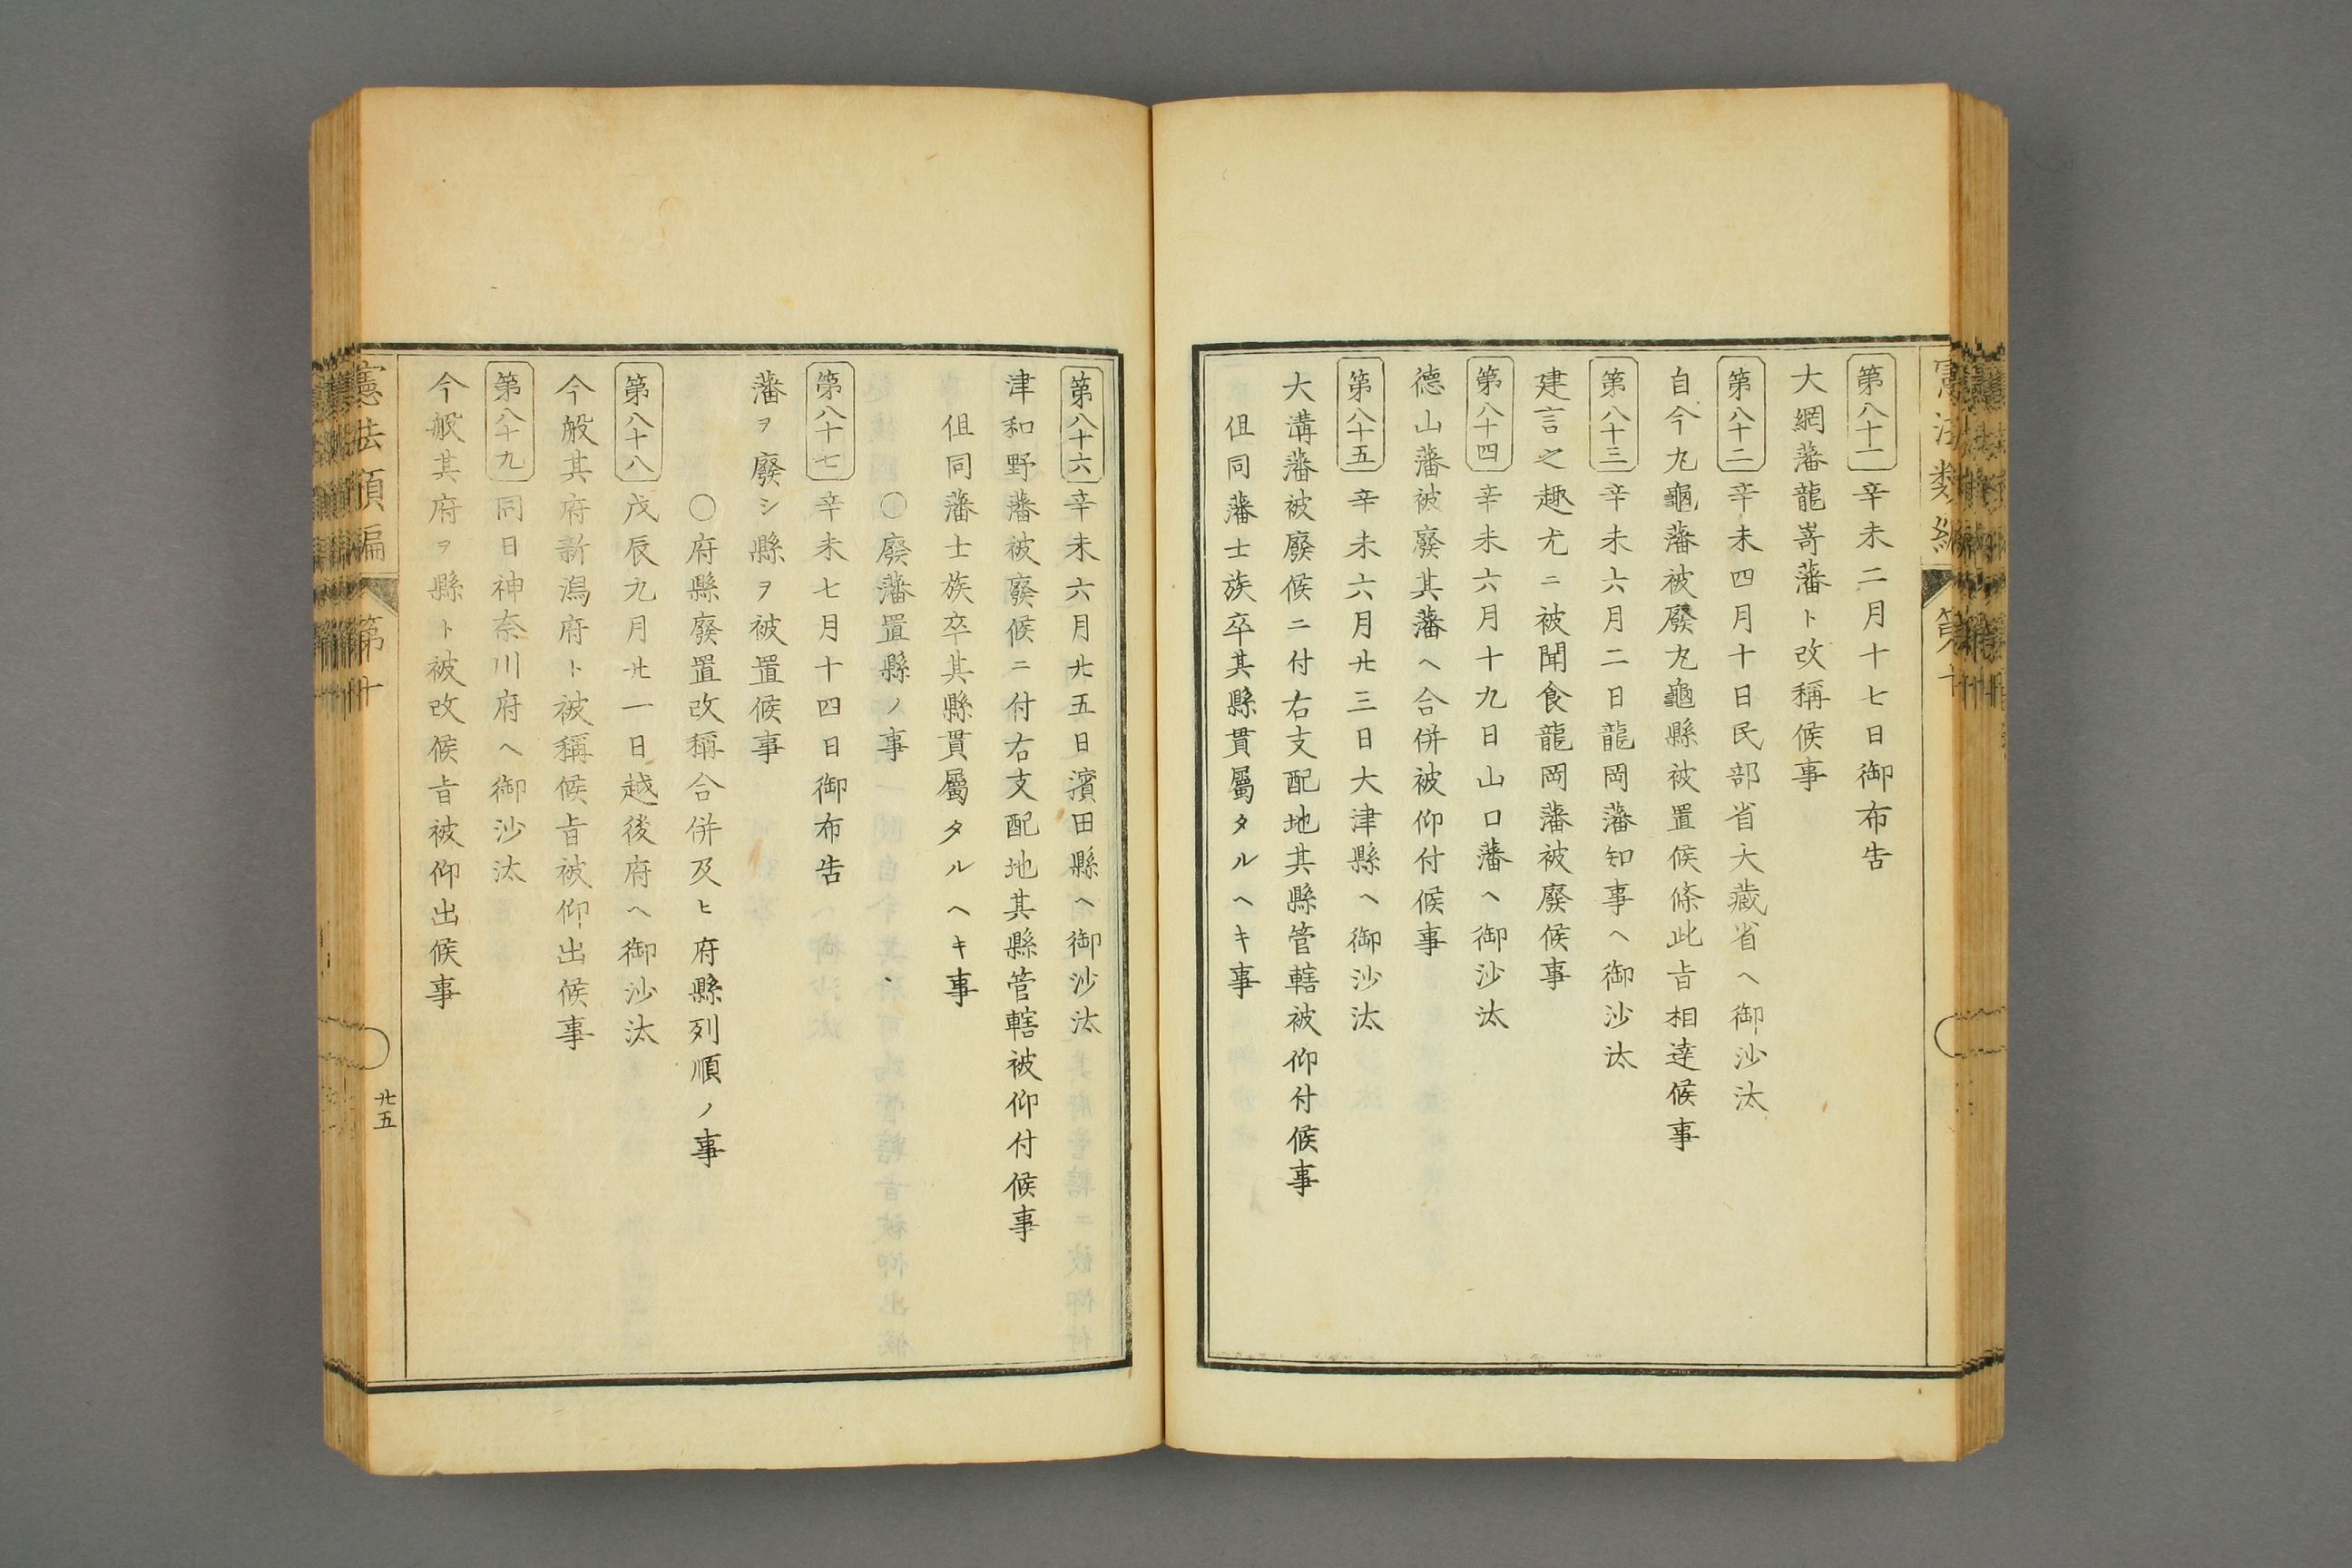 憲法類編 第十
第八十一 辛未二月十七日御布告
大網藩龍嵜藩ト改稱候事
第八十二 辛未四月十日民部省大藏省ヘ御沙汰
自今丸龜藩被廢丸龜縣被置候條此旨相達候事
第八十三 辛未六月二日龍岡藩知事ヘ御沙汰
建言之趣尤ニ被聞食龍岡藩被廢候事
第八十四 辛未六月十九日山口藩ヘ御沙汰
德山藩被廢其藩ヘ合併被仰付候事
第八十五 辛未六月廿三日大津縣ヘ御沙汰
大溝藩被廢候ニ付右支配地其縣管轄被仰付候事
伹同藩士族卒其縣貫屬タルヘキ事
第八十六 辛未六月廿五日濱田縣ヘ御沙汰
津和野藩被廢候ニ付右支配地其縣管轄被仰付候事
伹同藩士族卒其縣貫屬タルヘキ事
〇廢藩置縣ノ事
第八十七 辛未七月十四日御布告
藩ヲ廢シ縣ヲ被置候事
〇府縣廢置改稱合併及ヒ府縣列順ノ事
第八十八 戊辰九月廿一日越後府ヘ御沙汰
今般其府新潟府ト被稱候旨被仰出候事
第八十九 同日神奈川府ヘ御沙汰
今般其府ヲ縣ト被改候旨被仰出候事
憲法類編 第十 廿五